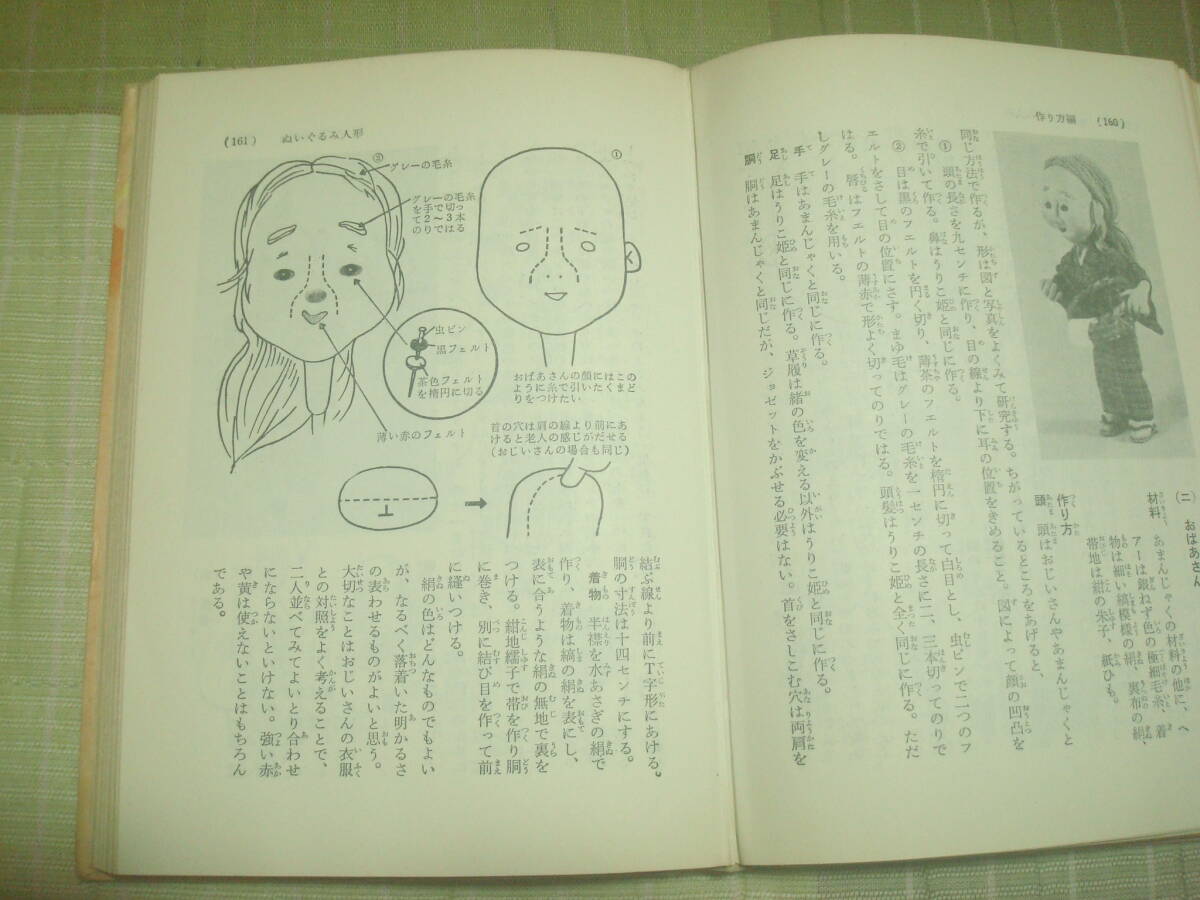 作り方編 (160)
(ニ) おばあさん
材料 あまんじゃくの材料の他に、ヘ
アーは銀ねず色の極細毛糸、着
物は細い縞模様の絹、裏布の絹、
帯地は紺の朱子、紙ひも。
作り方
頭 頭はおじいさんやあまんじゃくと
同じ方法で作るが、形は図と写真をよくみて研究する。ちがっているところをあげると、
① 頭の長さを九センチに作り、目の線より下に耳の位置をきめること。図によって顔の凹凸を
糸で引いて作る。鼻はうりこ姫と同じに作る。
② 目は黒のフェルトを円く切り、薄茶のフェルトを楕円に切って白目とし、虫ピンで二つのフ
ェルトをさして目の位置にさす。まゆ毛はグレーの毛糸を一センチの長さに二、三本切ってのりで
はる。唇はフェルトの薄赤で形よく切ってのりではる。頭髪はうりこ姫と全く同じに作る。ただ
しグレーの毛糸を用いる。
手 手はあまんじゃくと同じに作る。
足 足はうりこ姫と同じに作る。草履は緒の色を変える以外はうりこ姫と同じに作る。
胴 胴はあまんじゃくと同じだが、ジョゼットをかぶせる必要はない。首をさしこむ穴は両肩を
(161) ぬいぐるみ人形
①
おばあさんの顔にはこの
ように糸で引いたくまど
りをつけたい
②
グレーの毛糸
グレーの毛糸
を手で切っ
て2〜3本
のりではる
虫ピン
黒フェルト
茶色フェルト
を楕円に切る
薄い赤のフェルト
首の穴は肩の線より前にあ
けると老人の感じがだせる
(おじいさんの場合も同じ)
結ぶ線より前にT字形にあける。
胴の寸法は十四センチにする。
着物 半襟を水あさぎの絹で
作り、着物は縞の絹を表にし、
表に合うような絹の無地で裏を
つける。紺地繻子で帯を作り胴
に巻き、別に結び目を作って前
に縫いつける。
絹の色はどんなものでもよい
が、なるべく落着いた明かるさ
の表わせるものがよいと思う。
大切なことはおじいさんの衣服
との対照をよく考えることで、
二人並べてみてよいとり合わせ
にならないといけない。強い赤
や黄は使えないことはもちろん
である。